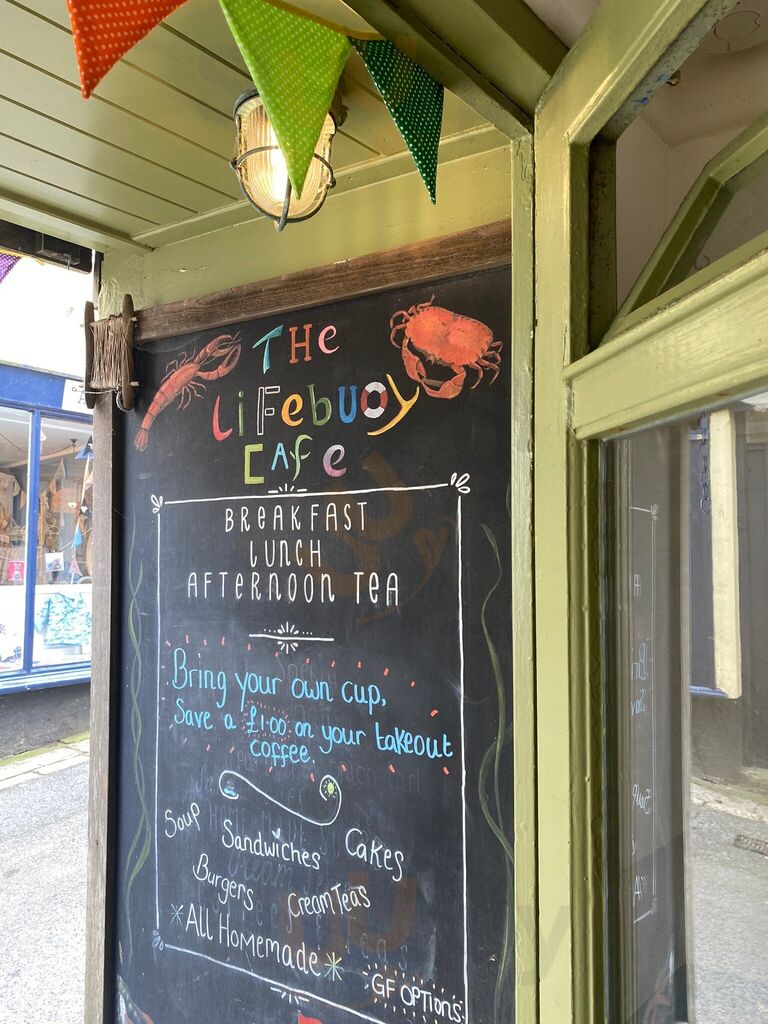 THE
LIFEBUOY
CAFE
BREAKFAST
LUNCH
AFTERNOON TEA
Bring your own cup,
Save a £1.00 on your takeout
coffee.
Soup Sandwiches Cakes
Burgers Cream Teas
*All Homemade*
GF OPTIONS